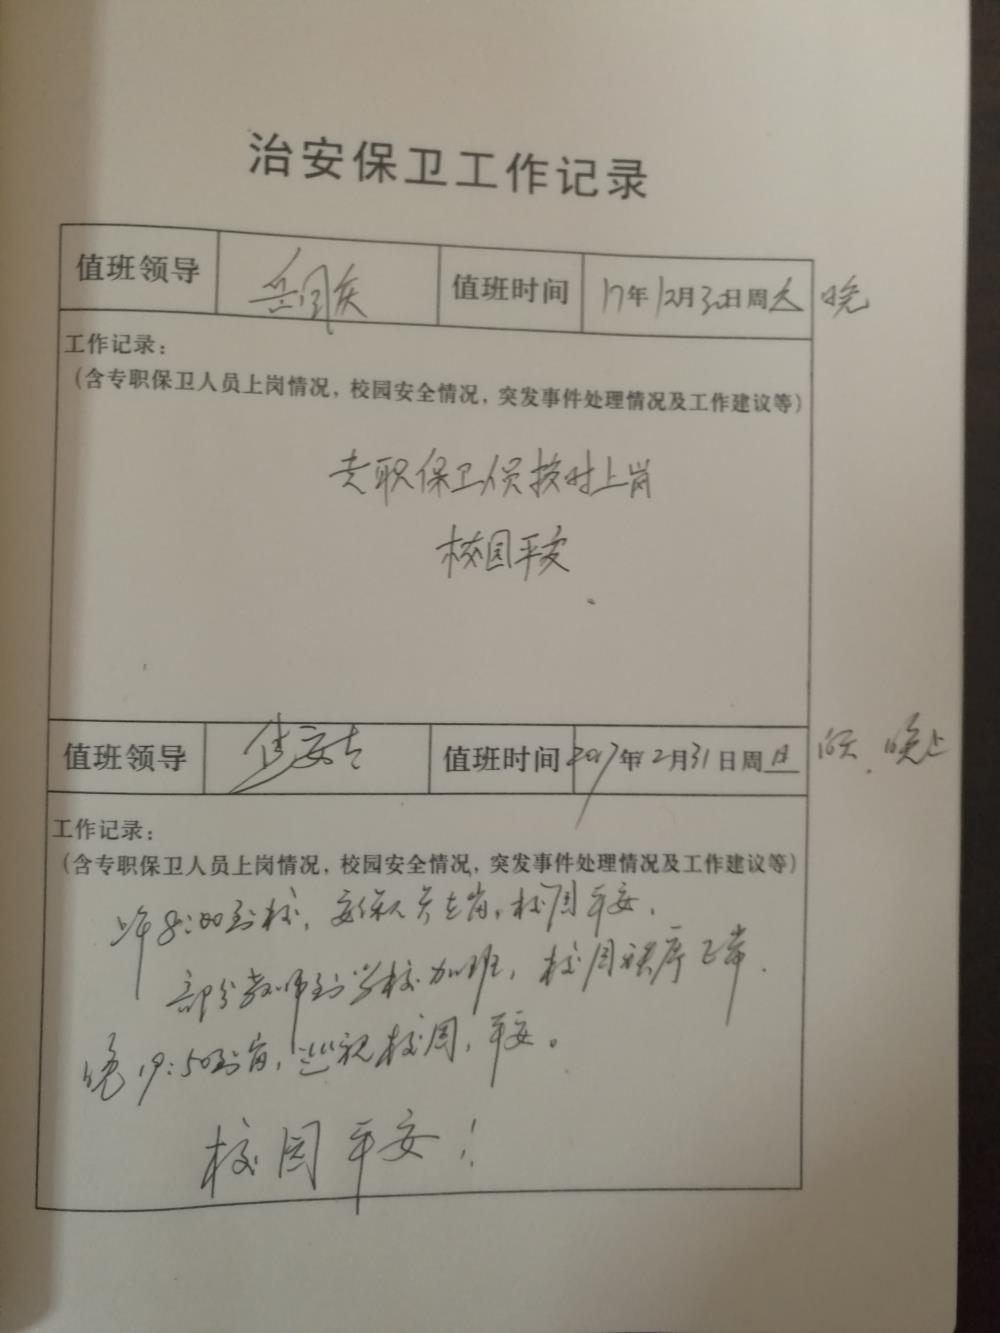 治安保卫工作记录
值班领导 岳国庆 值班时间 17年12月30日周六 晚
工作记录：
（含专职保卫人员上岗情况，校园安全情况，突发事件处理情况及工作建议等）
专职保卫人员按时上岗
校园平安
值班领导 值班时间 2017年12月31日周日 白天、晚上
工作记录：
（含专职保卫人员上岗情况，校园安全情况，突发事件处理情况及工作建议等）
上午8:00到校，安保人员在岗，校园平安，
部分教师到学校加班，校园秩序正常．
晚19:50到岗，巡视校园，平安。
校园平安！